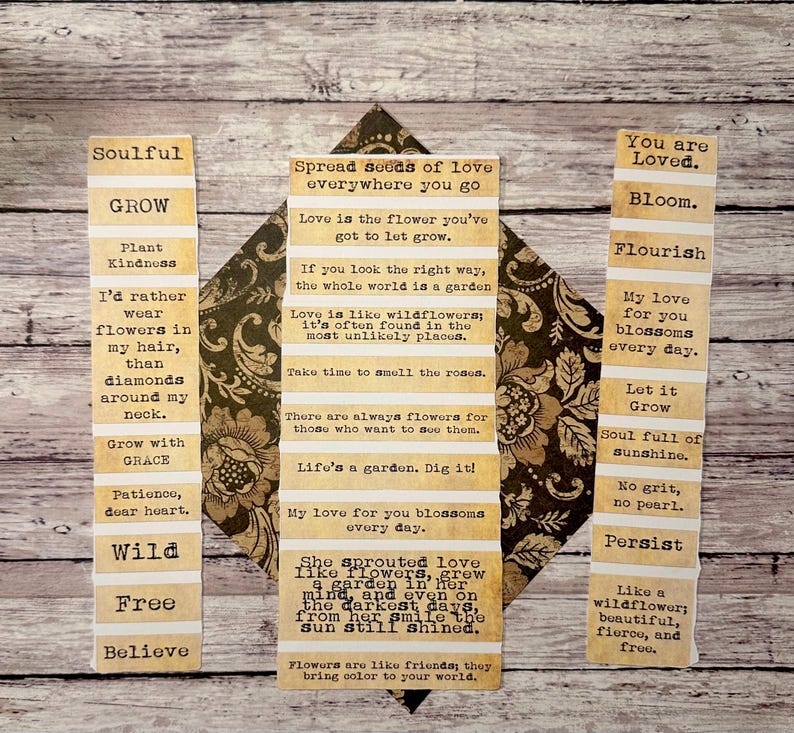 Soulful
GROW
Plant
Kindness
I'd rather
wear
flowers in
my hair,
than
diamonds
around my
neck.
Grow with
GRACE
Patience,
dear heart.
Wild
Free
Believe
Spread seeds of love
everywhere you go
Love is the flower you've
got to let grow.
If you look the right way,
the whole world is a garden
Love is like wildflowers;
it's often found in the
most unlikely places.
Take time to smell the roses.
There are always flowers for
those who want to see them.
Life's a garden. Dig it!
My love for you blossoms
every day.
She sprouted love
like flowers, grew
a garden in her
mind, and even on
the darkest days,
from her smile the
sun still shined.
Flowers are like friends; they
bring color to your world.
You are
Loved.
Bloom.
Flourish
My love
for you
blossoms
every day.
Let it
Grow
Soul full of
sunshine.
No grit,
no pearl.
Persist
Like a
wildflower;
beautiful,
fierce, and
free.